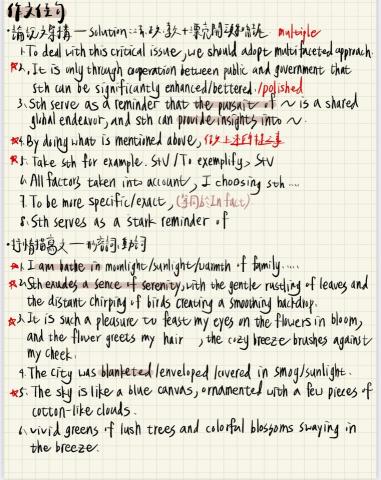 作文佳句
·論說文等情—Solution
multiple
1. To deal with this critical issue, we should adopt multifaceted approach.
★2. It is only through cooperation between public and government that
sth can be significantly enhanced/bettered./polished
3. Sth serve as a reminder that the pursuit of ～ is a shared
global endeavor, and sth can provide insights into ～.
★4. By doing what is mentioned above,
★5. Take sth for example. S+V / To exemplify, S+V
6. All factors taken into account, I choosing sth ....
7. To be more specific/exact, (等同於In fact)
8. Sth serves as a stark reminder of
·抒情描寫文—形容詞、動詞
★1. I am bathe in monlight/sunlight/warmth of family.....
★2. Sth exudes a sence of serenity, with the gentle rustling of leaves and
the distant chirping of birds creating a smoothing backdrop.
★3. It is such a pleasure to feast my eyes on the flowers in bloom,
and the flower greets my hair , the cozy breeze brushes against
my cheek.
4. The city was blanketed/enveloped/covered in smog/sunlight.
★5. The sky is like a blue canvas, ornamented with a few pieces of
cotton-like clouds.
6. vivid greens of lush trees and colorful blossoms swaying in
the breeze.